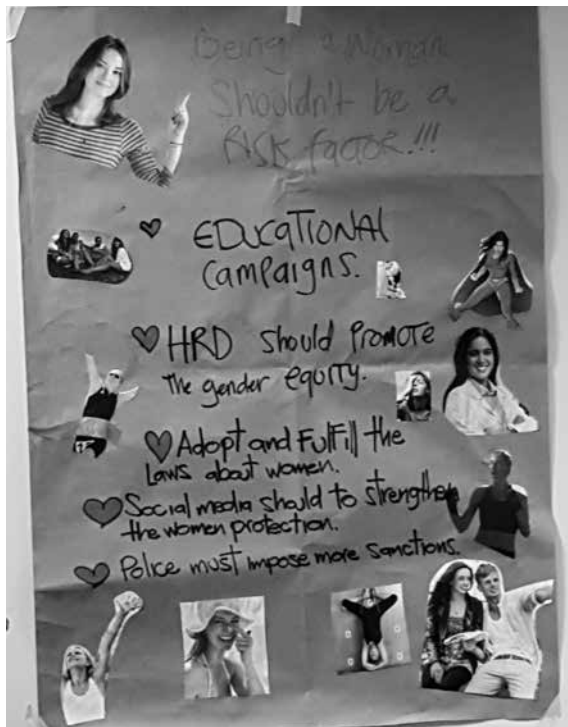 Being a Woman
Shouldn't be a
RISK factor!!!
EDUCATIONAL
Campaigns.
HRD should Promote
The gender equity.
Adopt and FulFill the
Laws about women.
Social media should to strengthen
the women protection.
Police must impose more sanctions.